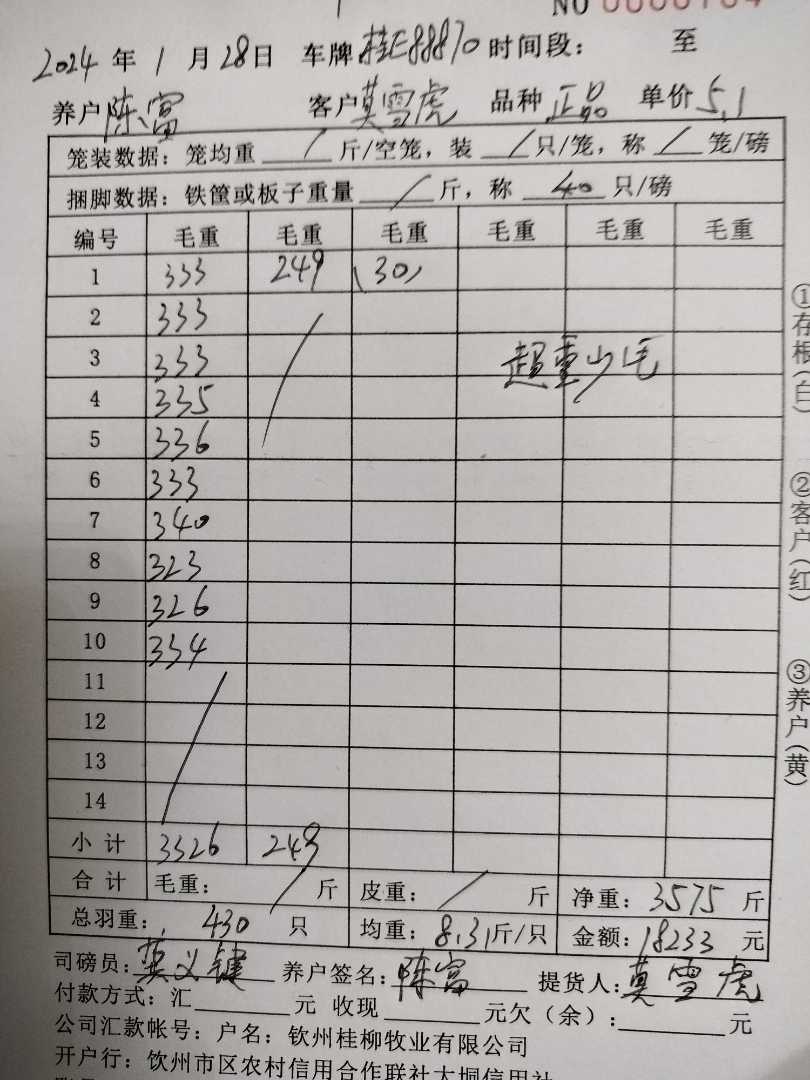 2024 年 1 月 28 日 车牌 桂E88870 时间段： 至
养户 陈富 客户 莫雪虎 品种 正品 单价 5.1
笼装数据：笼均重 / 斤/空笼，装 / 只/笼，称 / 笼/磅
捆脚数据：铁筐或板子重量 / 斤，称 40 只/磅
编号 毛重 毛重 毛重 毛重 毛重 毛重
1 333 249 (30)
2 333
3 333 超重少毛
4 335
5 336
6 333
7 340
8 323
9 326
10 334
11
12
13
14
小计 3326 249
合计 毛重： / 斤 皮重： / 斤 净重：3575 斤
总羽重： 430 只 均重：8.31斤/只 金额：18233 元
司磅员：莫义键 养户签名：陈富 提货人：莫雪虎
付款方式：汇 元 收现 元欠（余）： 元
公司汇款帐号：户名：钦州桂柳牧业有限公司
开户行：饮州市区农村信用合作联社大垌信用社
①存根(白) ②客户(红) ③养户(黄)